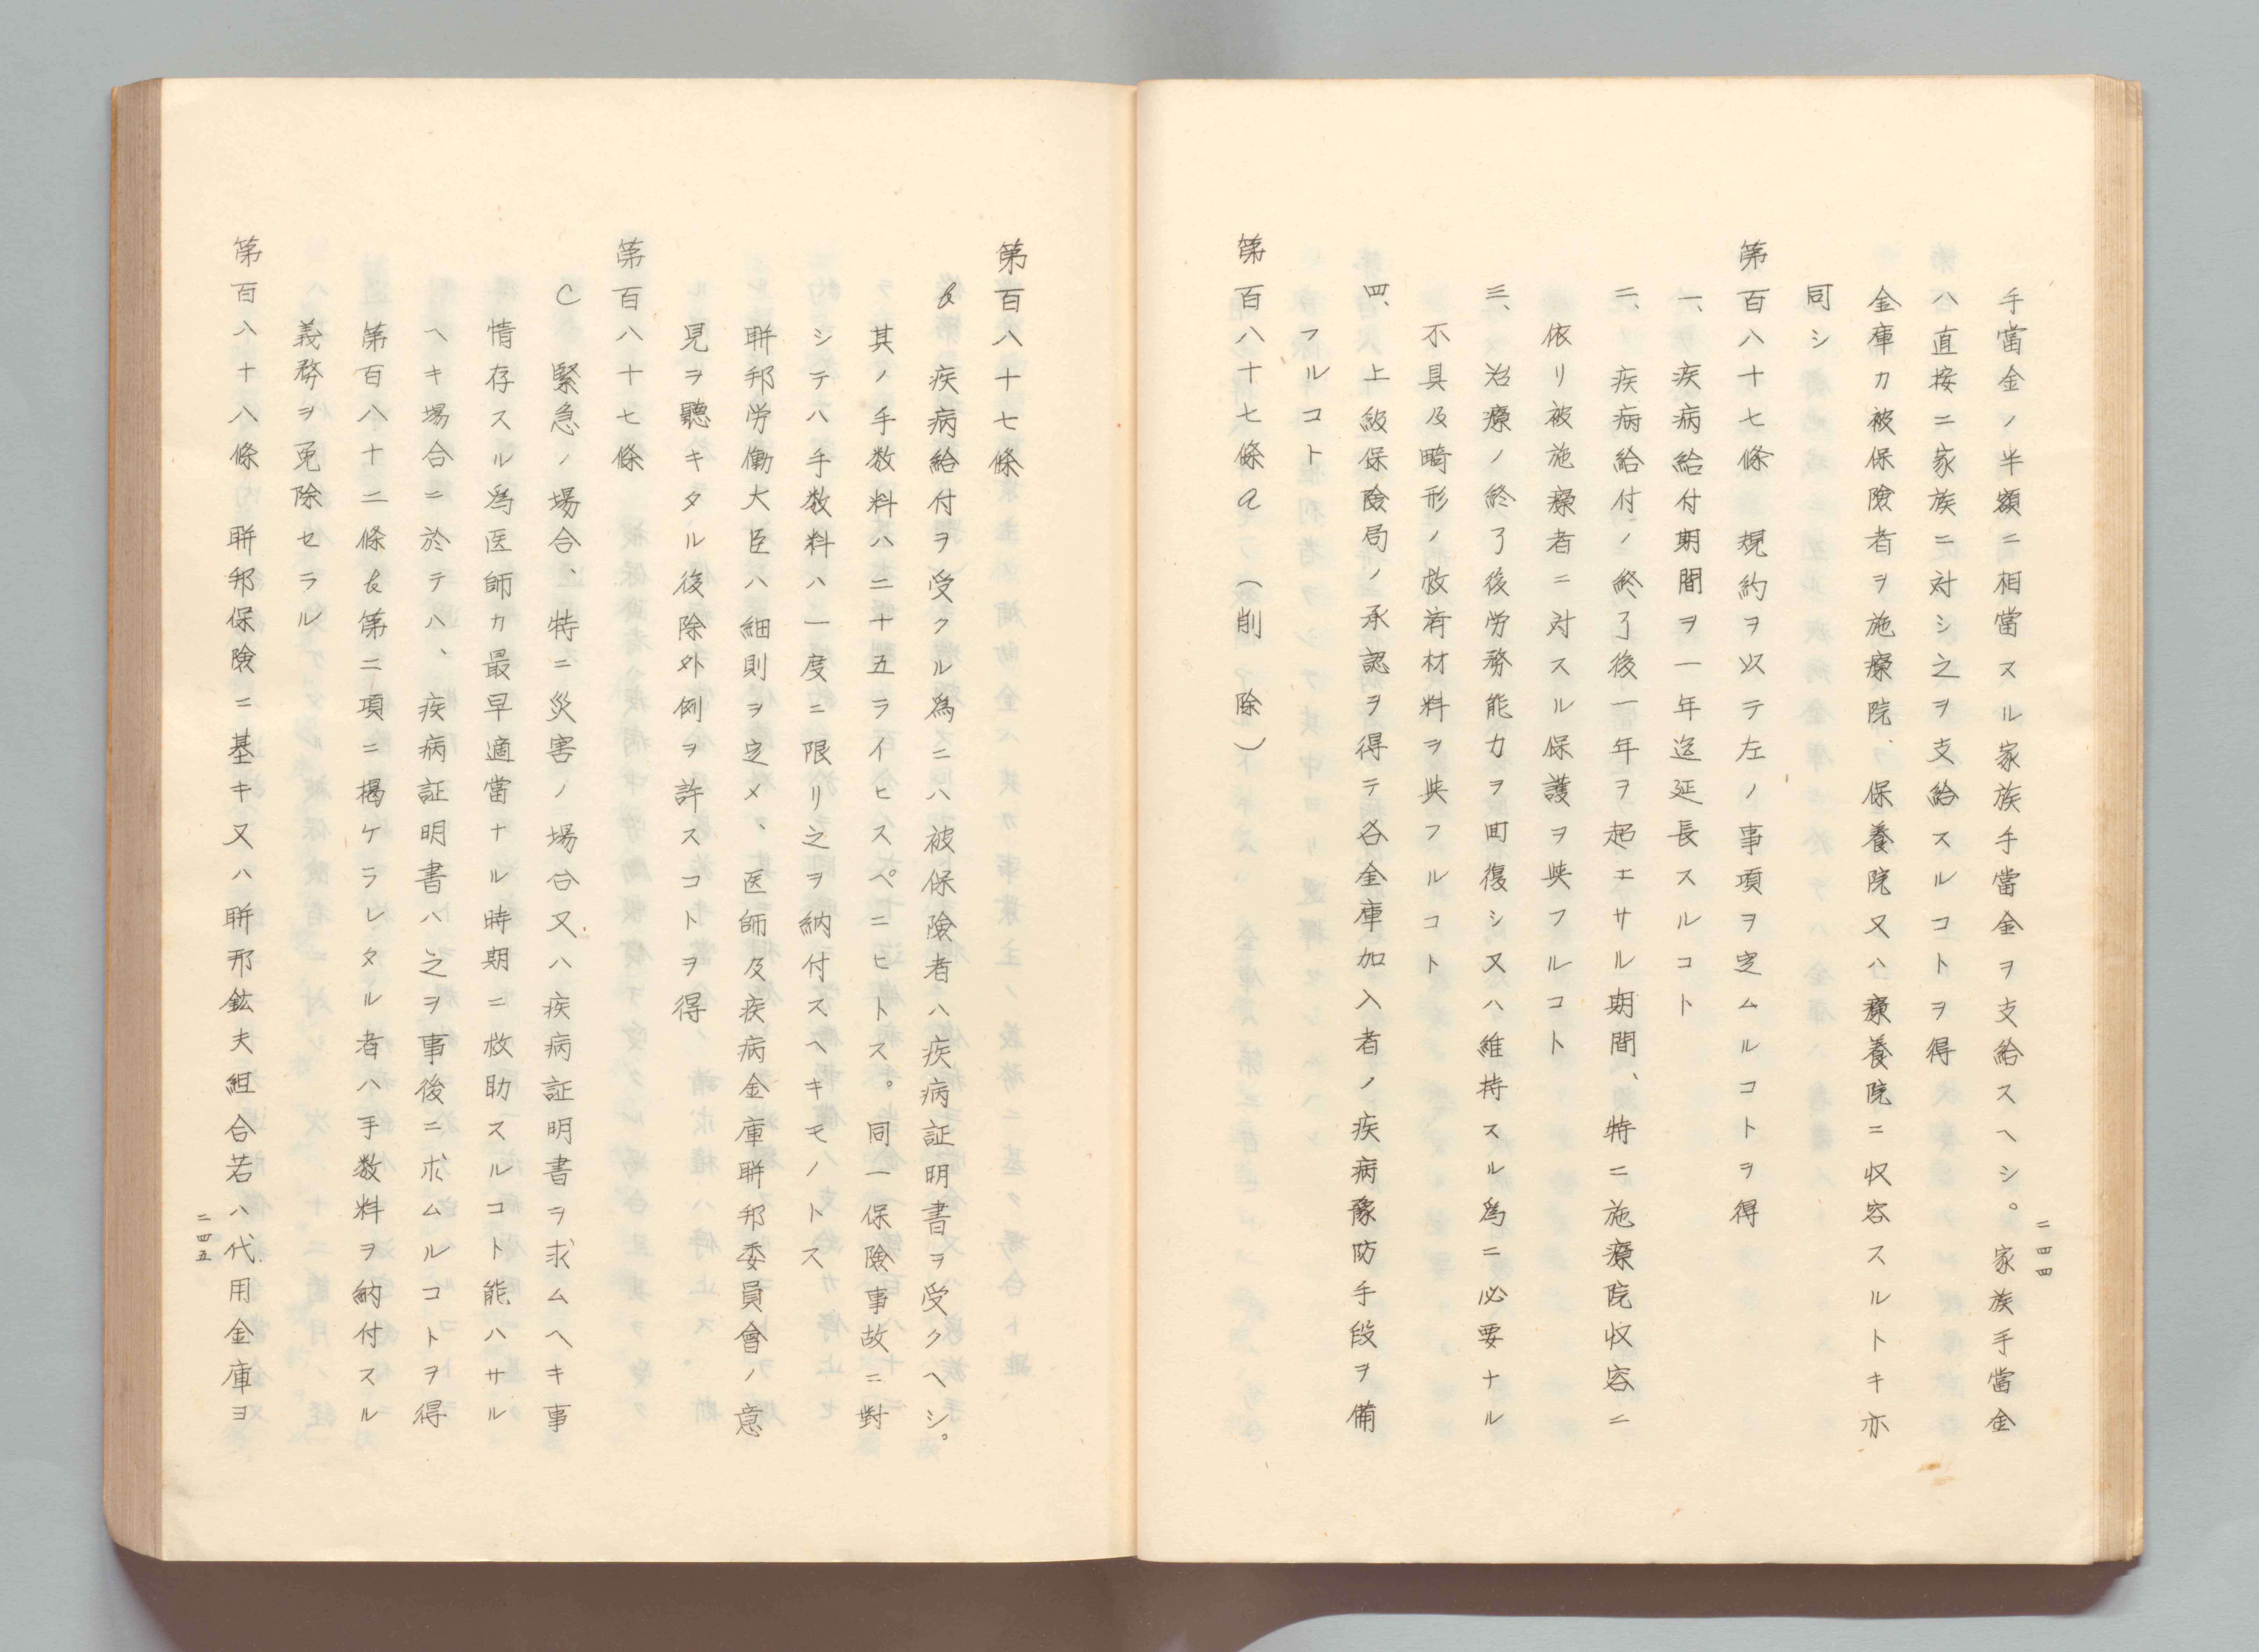 二四四
手當金ノ半額ニ相當スル家族手當金ヲ支給スヘシ。家族手當金
ハ直接ニ家族ニ対シ之ヲ支給スルコトヲ得
金庫カ被保險者ヲ施療院、保養院又ハ療養院ニ収容スルトキ亦
同シ
第百八十七條　規約ヲ以テ左ノ事項ヲ定ムルコトヲ得
一、疾病給付期間ヲ一年迄延長スルコト
二、疾病給付ノ終了後一年ヲ超エサル期間、特ニ施療院収容ニ
依リ被施療者ニ対スル保護ヲ與フルコト
三、治療ノ終了後労務能力ヲ囬復シ又ハ維持スル為ニ必要ナル
不具及畸形ノ救済材料ヲ與フルコト
四、上級保險局ノ承認ヲ得テ各金庫加入者ノ疾病豫防手段ヲ備
フルコト
第百八十七條a（削除）
第百八十七條
b　疾病給付ヲ受クル為ニハ被保險者ハ疾病証明書ヲ受クヘシ。
其ノ手数料ハ二十五ライヒスペニヒトス。同一保險事故ニ對
シテハ手数料ハ一度ニ限リ之ヲ納付スヘキモノトス
聯邦労働大臣ハ細則ヲ定メ、医師及疾病金庫聯邦委員會ノ意
見ヲ聽キタル後除外例ヲ許スコトヲ得
第百八十七條
c　緊急ノ場合、特ニ災害ノ場合又ハ疾病証明書ヲ求ムヘキ事
情存スル為医師カ最早適當ナル時期ニ救助スルコト能ハサル
ヘキ場合ニ於テハ、疾病証明書ハ之ヲ事後ニ求ムルコトヲ得
第百八十二條b第二項ニ掲ケラレタル者ハ手数料ヲ納付スル
義務ヲ免除セラル
第百八十八條　聯邦保險ニ基キ又ハ聯邦鉱夫組合若ハ代用金庫ヨ
二四五